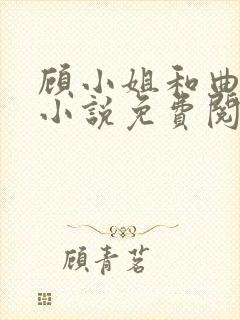 顾小姐和曲
小说免費閱
顾青茗